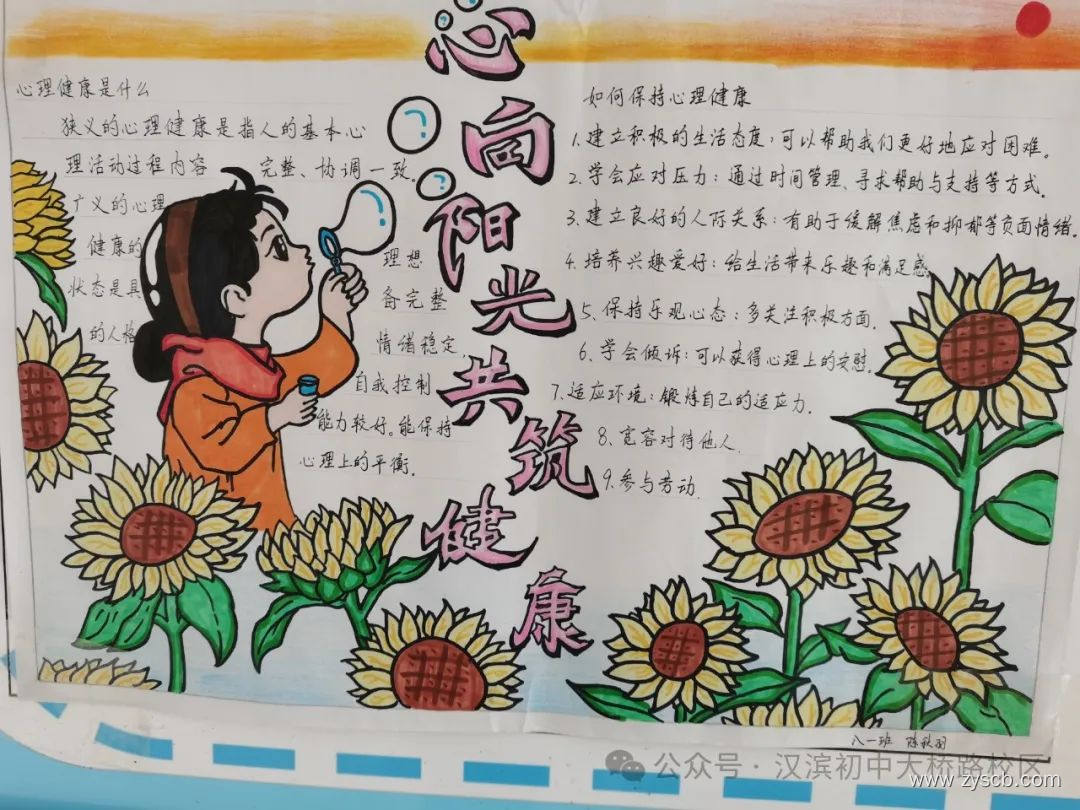 心向阳光共筑健康
心理健康是什么
狭义的心理健康是指人的基本心
理活动过程内容 完整、协调一致。
广义的心理
健康的 理想
状态是具 备完整
的人格 情绪稳定.
自我控制
能力较好。能保持
心理上的平衡.
如何保持心理健康
1.建立积极的生活态度;可以帮助我们更好地应对困难。
2.学会应对压力:通过时间管理、寻求帮助与支持等方式.
3.建立良好的人际关系:有助于缓解焦虑和抑郁等负面情绪.
4.培养兴趣爱好:给生活带来乐趣和满足感
5、保持乐观心态:多关注积极方面.
6、学会倾诉:可以获得心理上的安慰。
7.适应环境:锻炼自己的适应力.
8、宽容对待他人.
9.参与劳动.
八一班 陈秋羽
公众号·汉滨初中大桥路校区
www.zyscb.com